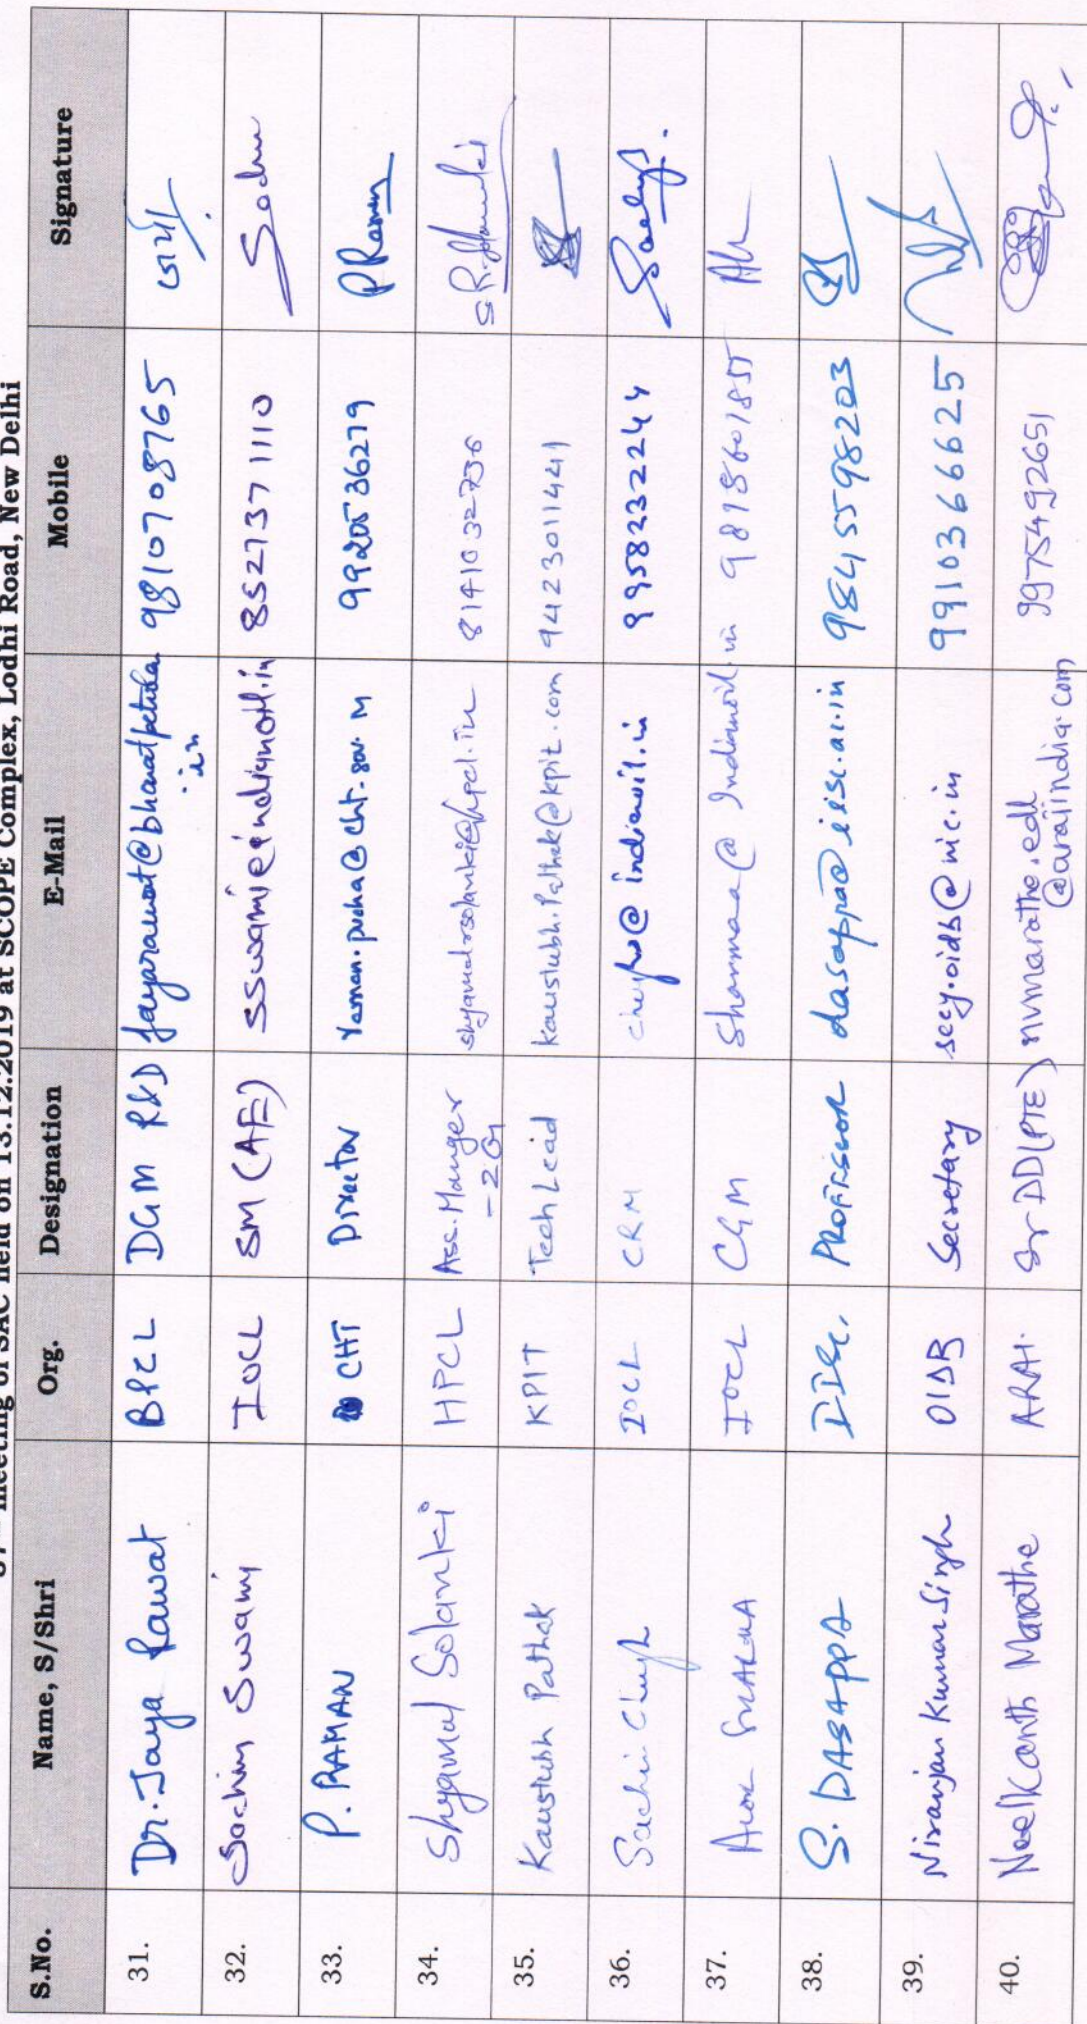 meeting of SAC held on 13.12.2019 at SCOPE Complex, Lodhi Road, New Delhi
S.No. Name, S/Shri Org. Designation E-Mail Mobile Signature
31. Dr. Jaya Rawat BPCL DGM R&D jayarawat@bharatpetroleum.in 9810708765 जया
32. Sachin Swami IOCL SM (AE) sswami@indianoil.in 8527371110
33. P. RAMAN CHT Director raman.pusha@cht.gov.in 9920536279 PRaman
34. Shyamal Solanki HPCL Ass. Manger
-2G shyamalrsolanki@hpcl.in 8141032736
35. Kaustubh Pathak KPIT Tech Lead kaustubh.Pathak@kpit.com 9423011441
36. Sachin Chugh IOCL CRM chughs@indianoil.in 9958232244
37. Alok SHARMA IOCL CGM Sharmaa@Indianoil.in 9818601855
38. S. DASAPPA IISc. PROFESSOR dasappa@iisc.ac.in 9845598203
39. Niranjan Kumar Singh OIDB Secretary secy.oidb@nic.in 9910366625
40. Neelkanth Marathe ARAI Sr DD (PTE) nvmarathe.edl
@araiindia.com 9975492651